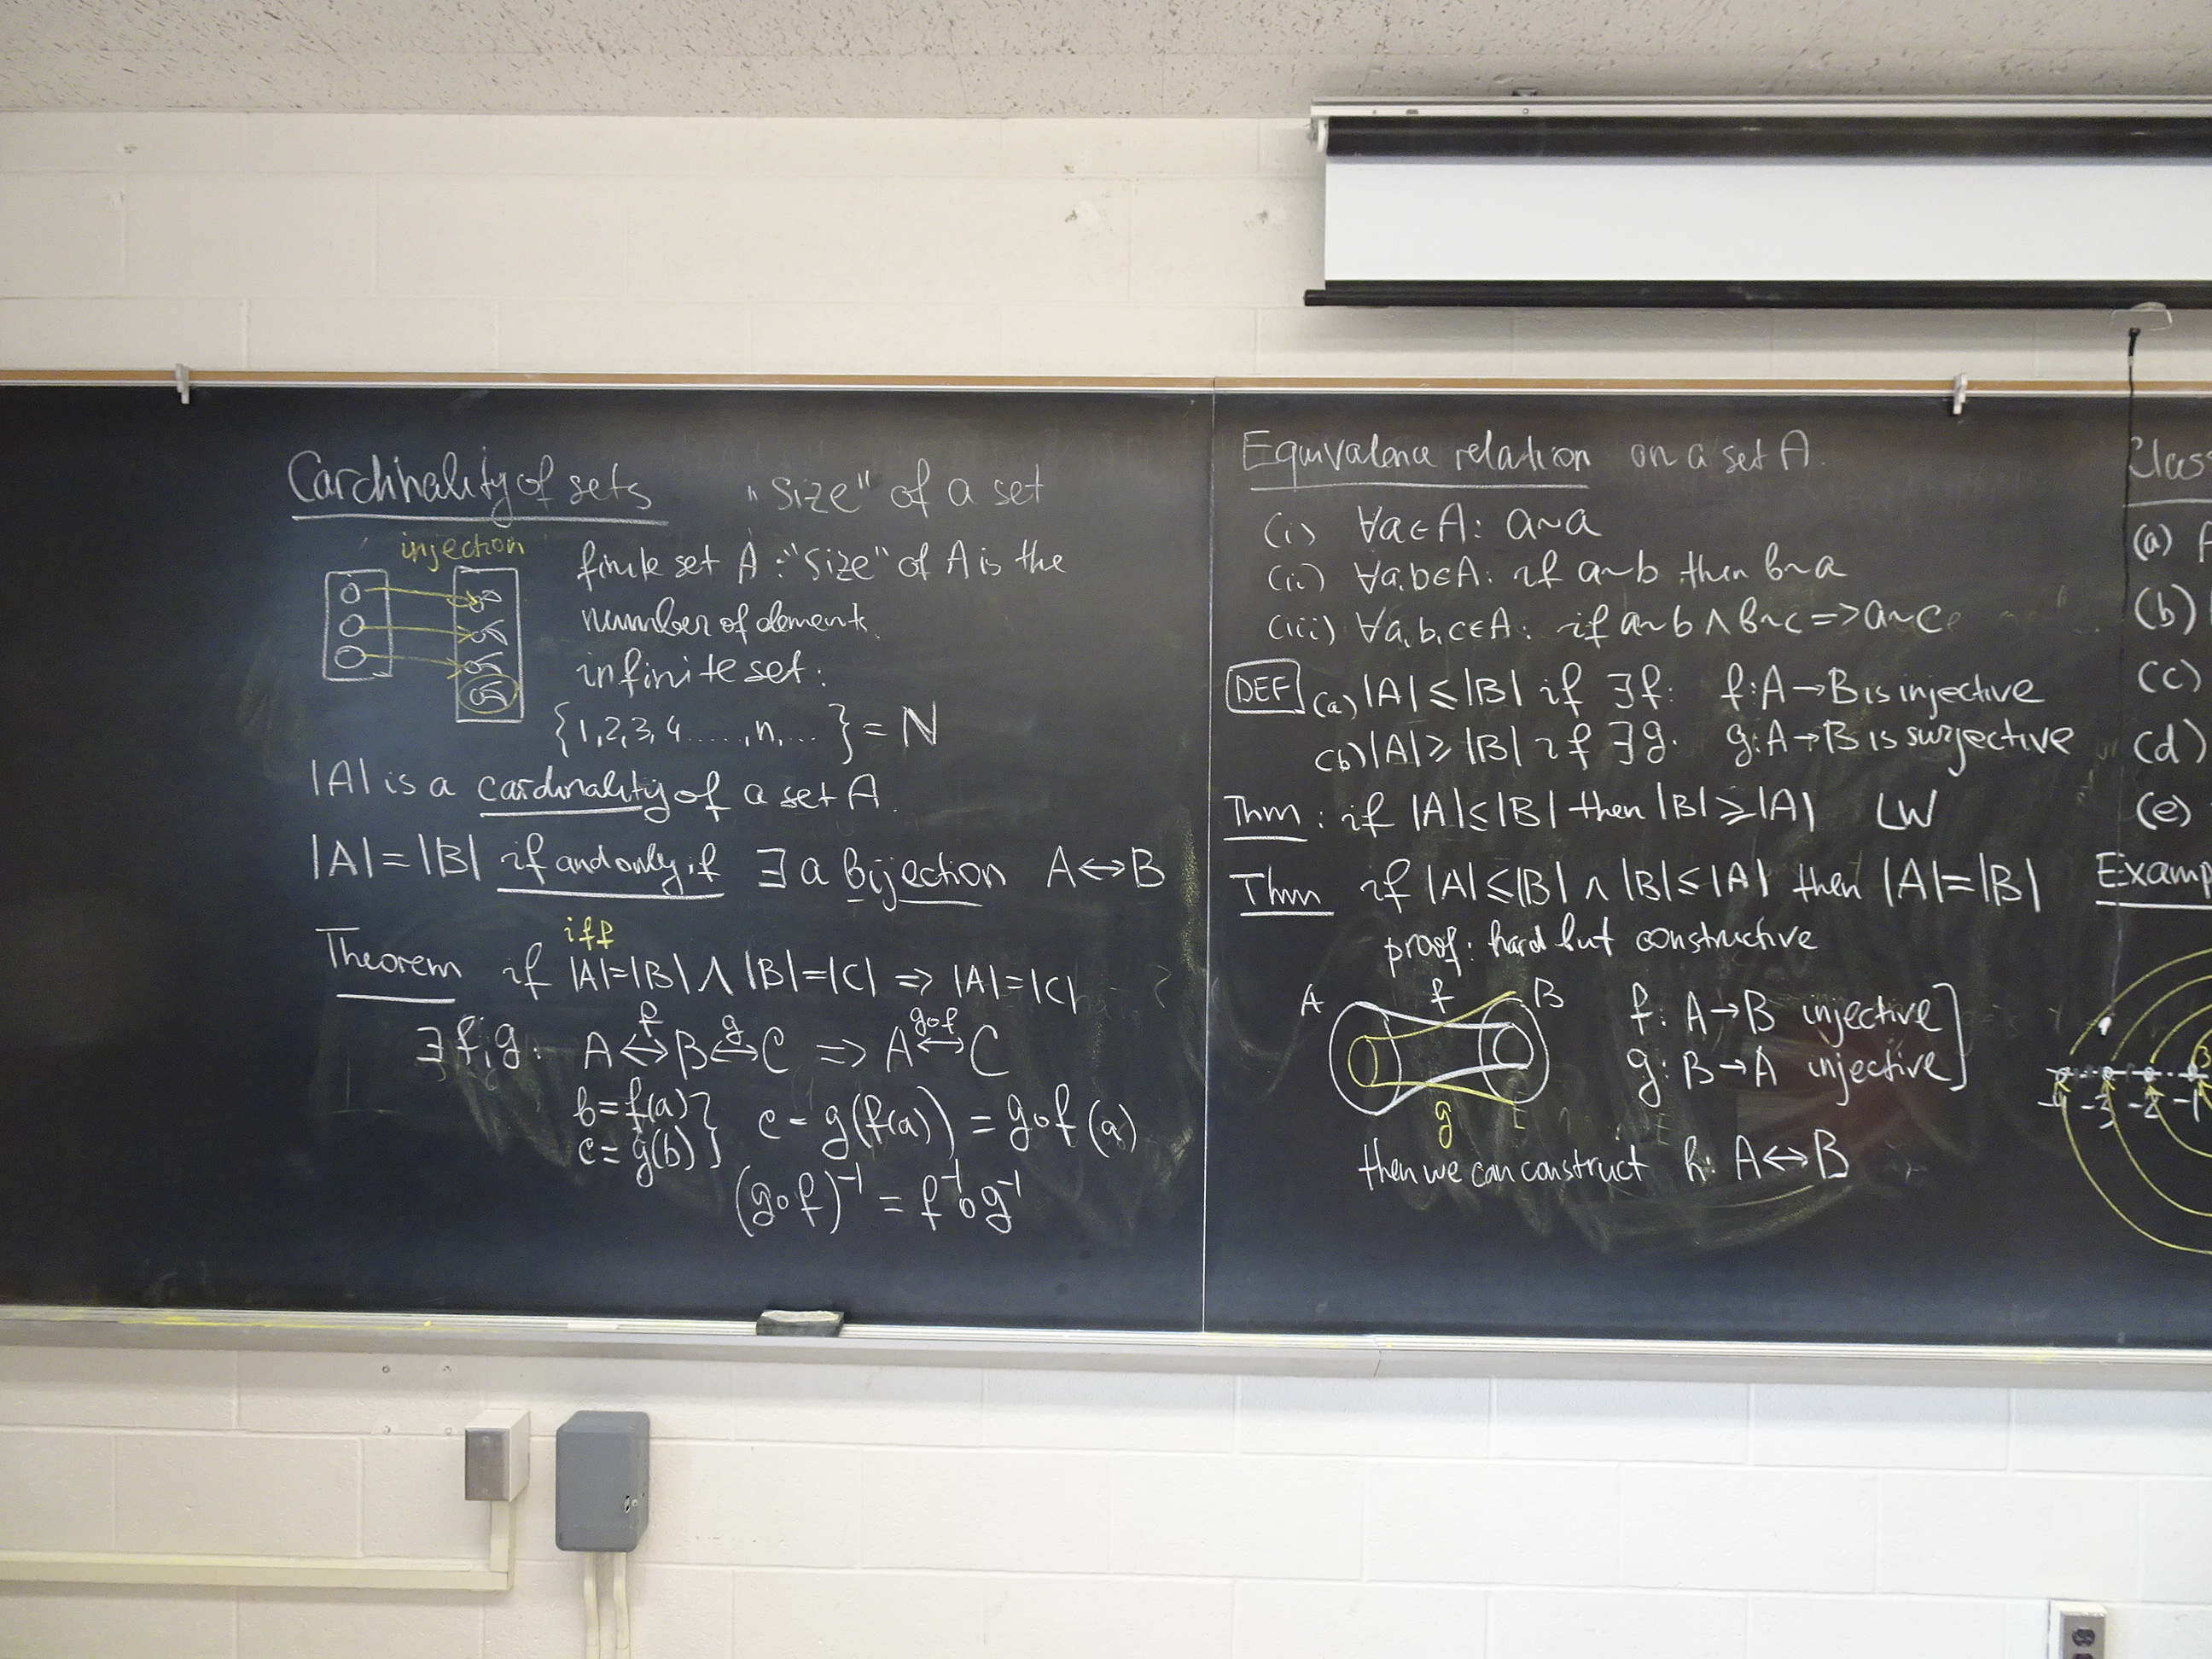 Cardinality of sets "size" of a set
injection
finite set A: "size" of A is the
number of elements.
infinite set:
{1,2,3,4.....,n,...} = N
|A| is a cardinality of a set A.
|A|=|B| if and only if ∃ a bijection A↔B
iff
Theorem if |A|=|B| ∧ |B|=|C| => |A|=|C|
∃ f,g: A <-f-> B <-g-> C => A <-g∘f-> C
b=f(a)
c=g(b) } c=g(f(a)) = g∘f(a)
(g∘f)⁻¹ = f⁻¹∘g⁻¹
Equivalence relation on a set A.
(i) ∀a∈A: a~a
(ii) ∀a,b∈A: if a~b then b~a
(iii) ∀a,b,c∈A: if a~b ∧ b~c => a~c
DEF (a) |A| ≤ |B| if ∃f: f:A→B is injective
(b) |A| ≥ |B| if ∃g: g:A→B is surjective
Thm: if |A|≤|B| then |B|≥|A| LW
Thm if |A|≤|B| ∧ |B|≤|A| then |A|=|B|
proof: hard but constructive
A f B
g
f: A→B injective
g: B→A injective ]
then we can construct h: A↔B
Clas
(a) A
(b)
(c)
(d)
(e)
Examp
-4 -3 -2 -1